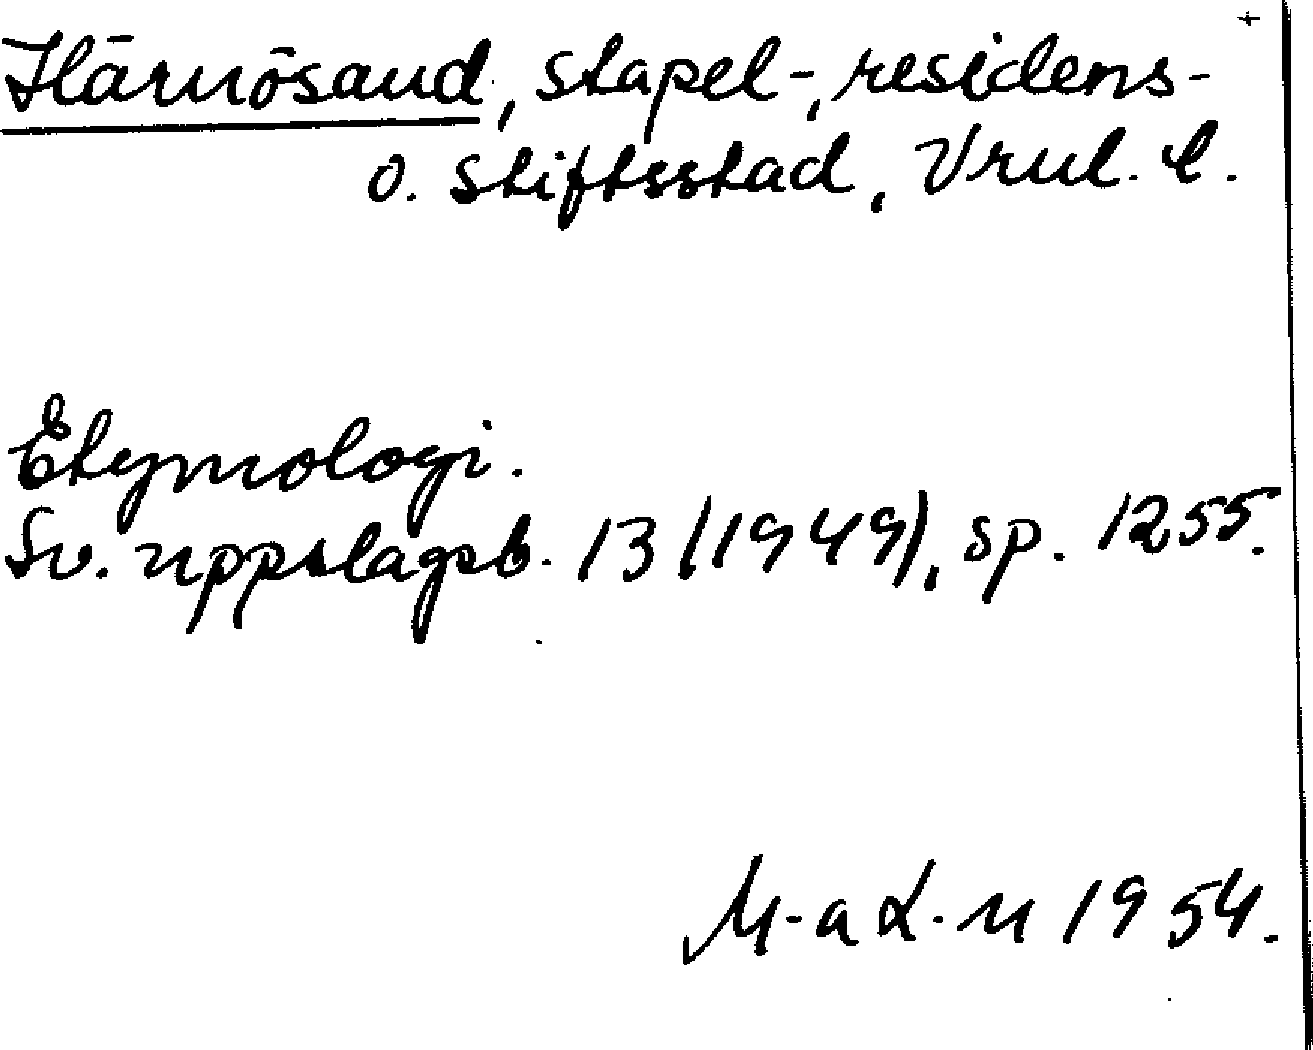 +
Härnösand, stapel-, residens-
o. stiftsstad, Vrnl. l.
Etymologi.
Sv. uppslagsb. 13 (1949), sp. 1255.
M-a L-n 1954.